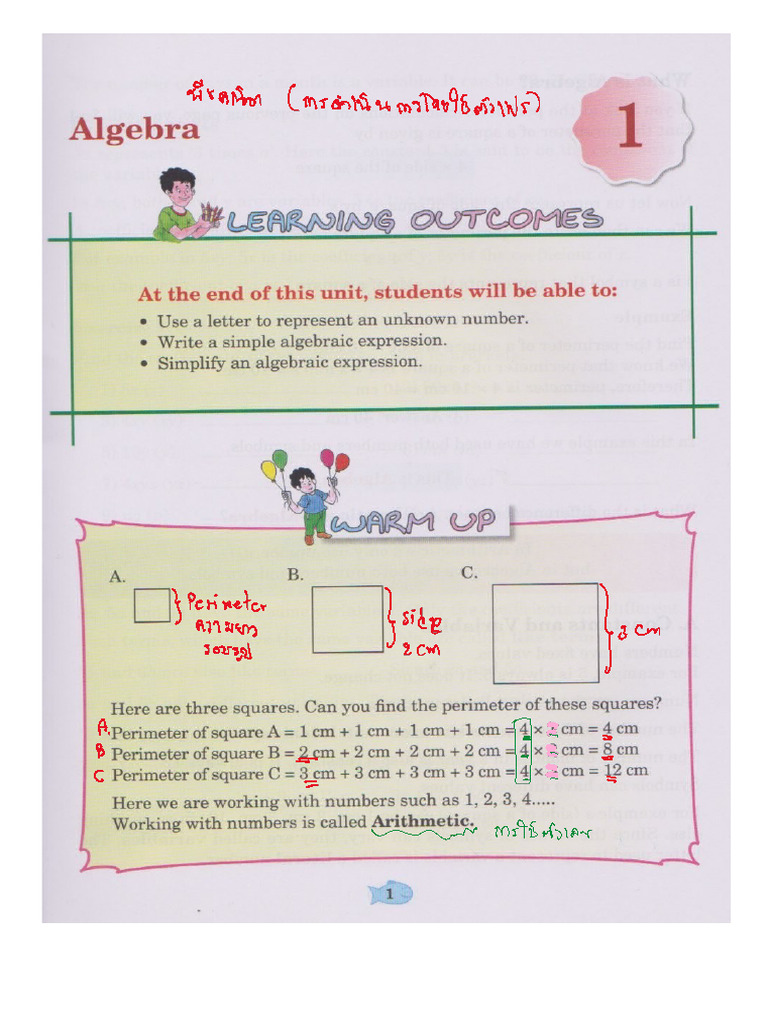 พีชคณิต (การดำเนินการโดยใช้ตัวแปร)
Algebra
1
LEARNING OUTCOMES
At the end of this unit, students will be able to:
• Use a letter to represent an unknown number.
• Write a simple algebraic expression.
• Simplify an algebraic expression.
WARM UP
A. B. C.
Perimeter
ความยาว
รอบรูป
side
2 cm
3 cm
Here are three squares. Can you find the perimeter of these squares?
A. Perimeter of square A = 1 cm + 1 cm + 1 cm + 1 cm = 4 × cm = 4 cm
B Perimeter of square B = 2 cm + 2 cm + 2 cm + 2 cm = 4 × 2 cm = 8 cm
C Perimeter of square C = 3 cm + 3 cm + 3 cm + 3 cm = 4 × cm = 12 cm
Here we are working with numbers such as 1, 2, 3, 4.....
Working with numbers is called Arithmetic. การใช้ตัวเลข
1